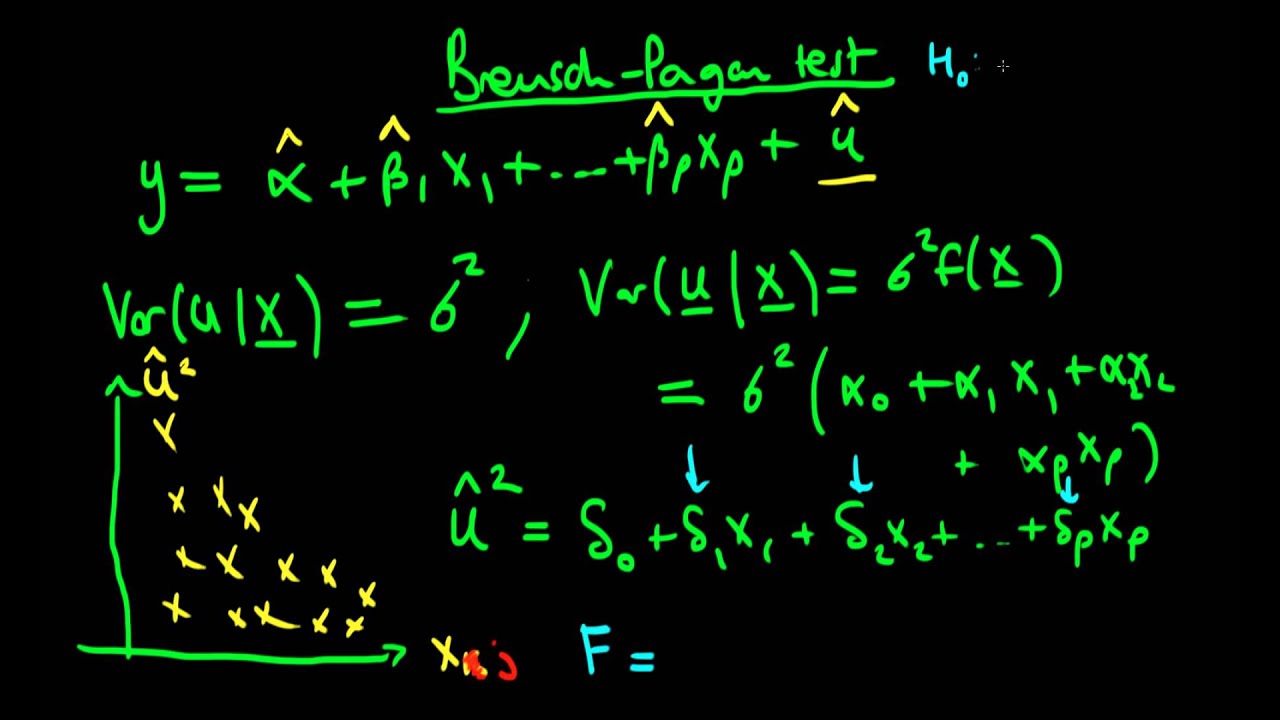 Breusch-Pagan test H₀:
y = α̂ + β̂₁x₁ + ... + β̂ₚxₚ + û
Var(u|X) = σ² , Var(u|X) = σ²f(X)
= σ²(α₀ + α₁x₁ + α₂x₂
+ αₚxₚ)
û²
û² = δ₀ + δ₁x₁ + δ₂x₂ + ... + δₚxₚ
x
F =